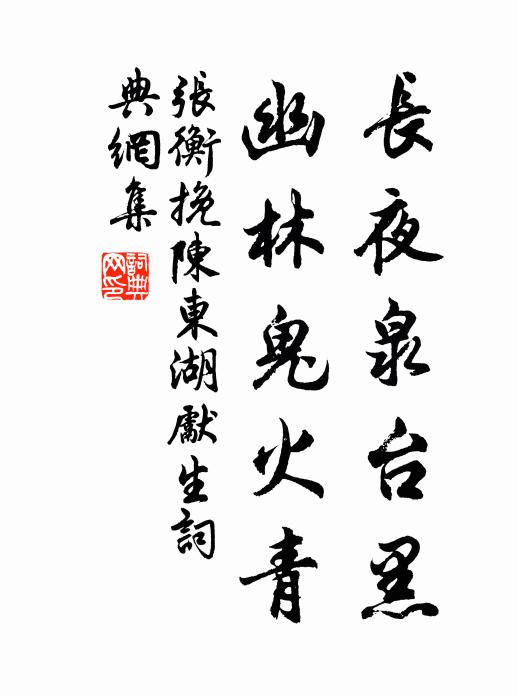 長夜泉台黑
幽林鬼火青
張衡挽陳東湖獻生詞
典網集
詞典
网印